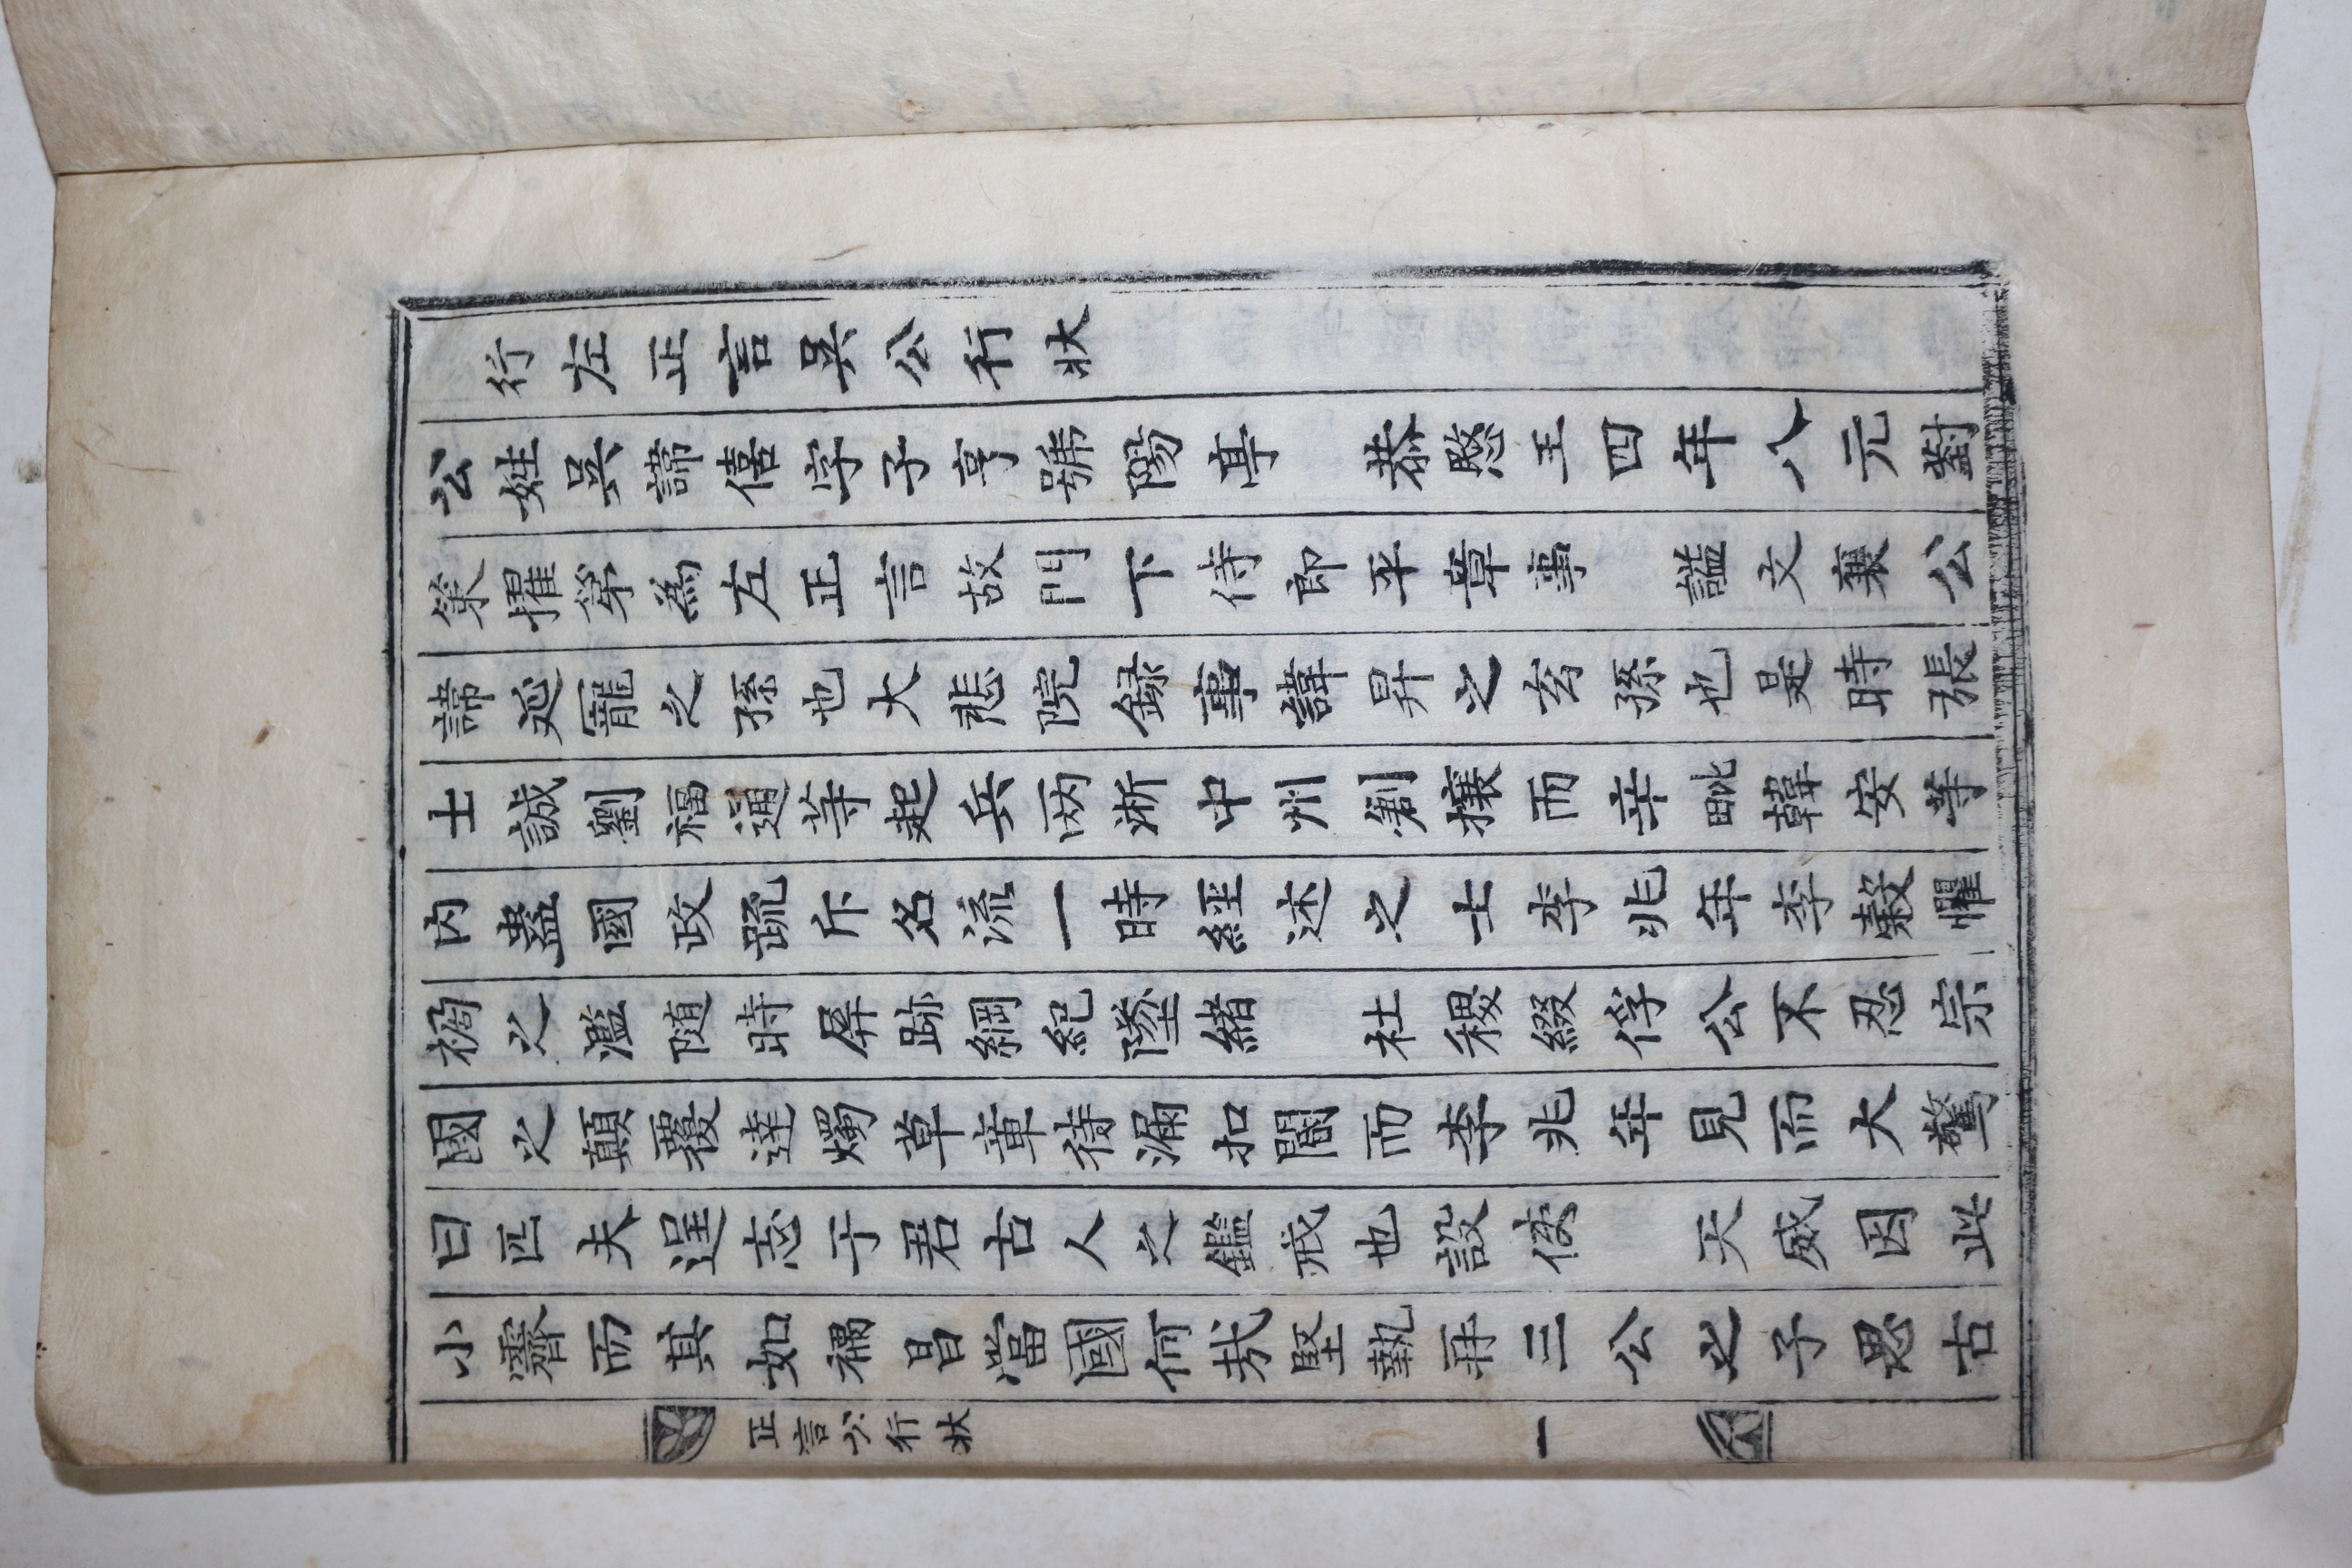 行左正言吳公行狀
公姓吳諱僖字子亨號陽亭 恭愍王四年八元對
策擢第為左正言故門下侍郎平章事 諡文襄公
諱延寵之孫也大悲院録事諱昇之玄孫也是時張
士誠劉福通等起兵两淅中州劊攘而辛毗韓安等
内蠱國政䟽斥名流一時經述之士李兆年李穀懼
禍之濫随時屏跡綱紀墬緒 社稷綴俘公不忍宗
國之顛覆達燭草章待漏扣閽而李兆年見而大驚
曰匹夫逞志于君古人之鑑戒也設使 天威因此
小霽而其如禑昌當國何㢤堅執再三公之子思古
正言公行狀
一